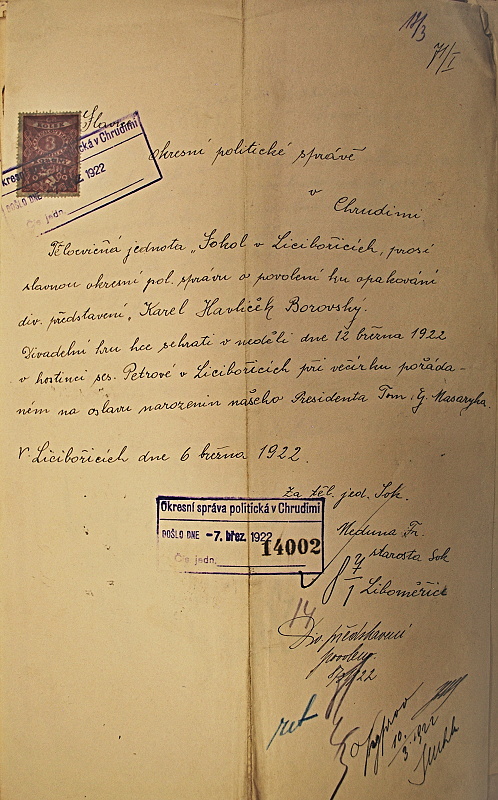 17/3
71/I
Slavná
3
Okresní správa politická v Chrudimi
DOŠLO DNE 1922
Čís. jedn.
Okresní politické správě
v
Chrudimi
Tělocvičná jednota „Sokol v Licibořicích, prosí
slavnou okresní pol. správu o povolení ku opakování
div. představení „Karel Havlíček Borovský.
Divadelní hru hce sehrati v neděli dne 12 března 1922
v hostinci ses. Petrové v Licibořicích při večírku pořáda-
ném na oslavu narozenin našeho Presidenta Tom. G. Masaryka.
V Licibořicích dne 6 března 1922.
Za těl. jed. Sok.
Okresní správa politická v Chrudimi
DOŠLO DNE -7. břez. 1922
14002
Čís. jedn.
Neduna Fr.
starosta Sok
Liboměřick
14
Div. představení
povoleno.
22
ret
10/3 1922